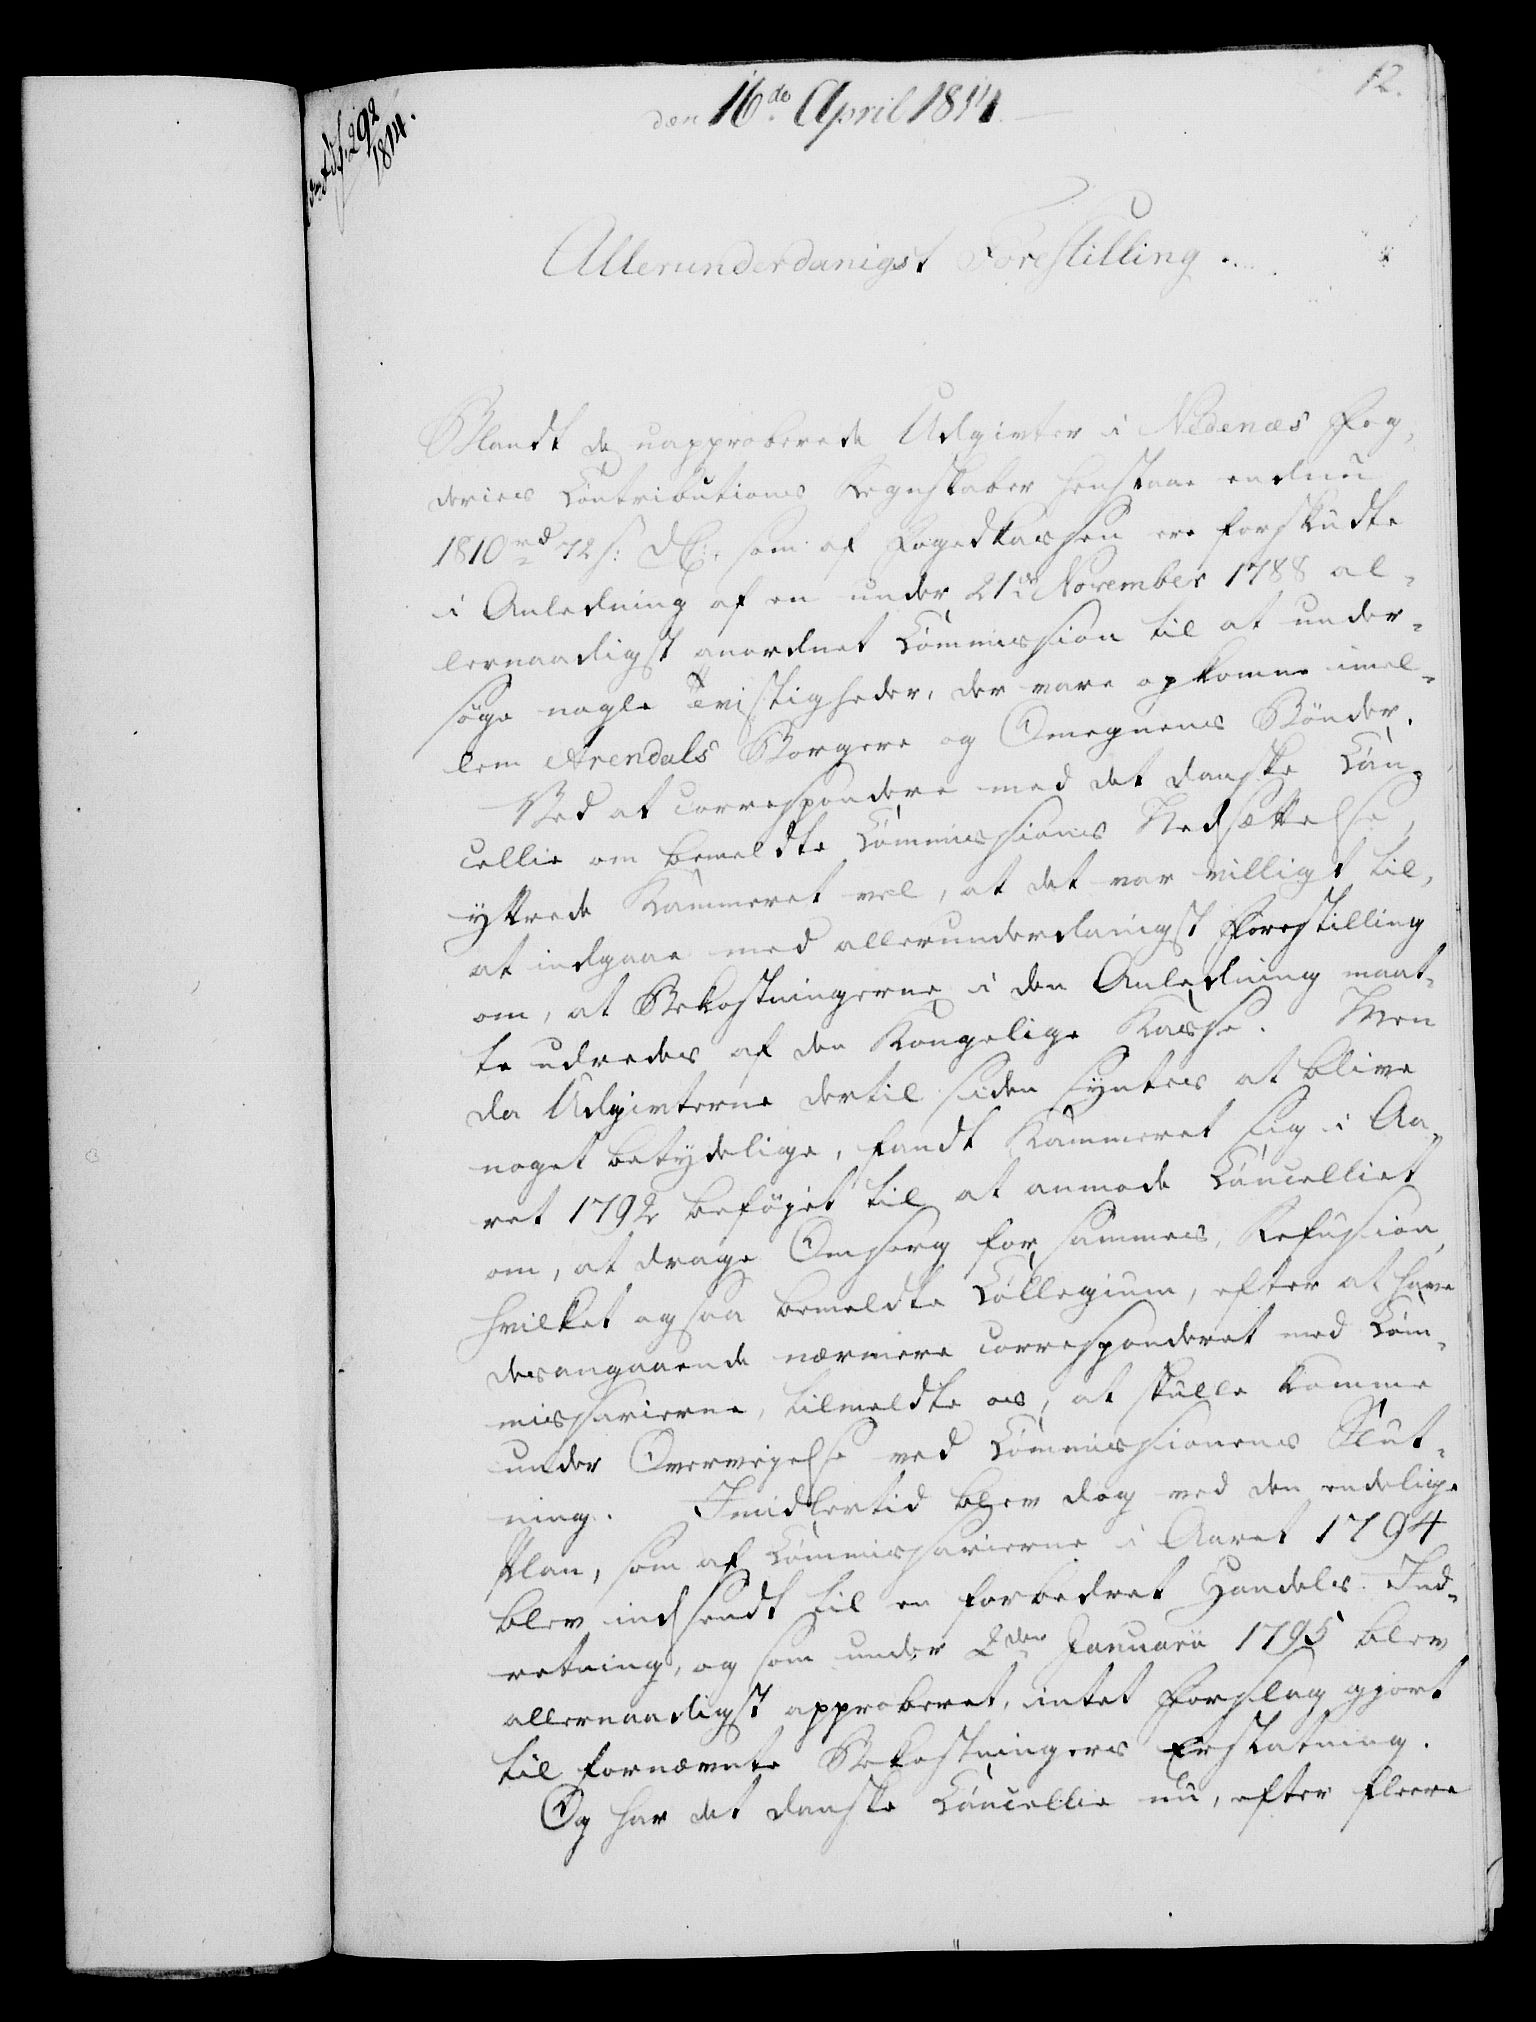 12.
292
1814.
den 16de April 1814.
Allerunderdanigst Forestilling.
Blandt de uapproberede Udgivter i Nedenæs Fog-
deries Contributions Regnskaber henstaae endnu
1810 rd 72 s: DC:, som af Fogedkassen ere forskudte
i Anledning af en under 21de November 1788 al-
lernaadigst anordnet Commission til at under-
søge nogle Tvistigheder, der vare opkomne imel-
lem Arendals Borgere og Omegnens Bønder.
Ved at correspondere med det danske Can-
cellie om bemeldte Commissions Nedsættelse,
yttrede Kammeret vel, at det var villigt til,
at indgaae med allerunderdanigst Forestilling
om, at Bekostningerne i den Anledning maat-
te udredes af den Kongelige Kasse. Men
da Udgivterne dertil siden syntes at blive
noget betydelige, fandt Kammeret sig i Aa-
ret 1792 beføjet til at anmode Cancelliet
om, at drage Omsorg for sammes Refusion,
hvilket ogsaa bemeldte Collegium, efter at have
desangaaende nærmere corresponderet med Com-
missarierne, tilmeldte os, at skulle komme
under Overvejelse ved Commissionens Slut-
ning. Imidlertid blev dog ved den endelige
Plan, som af Commissarierne i Aaret 1794
blev indsendt til en forbedret Handels-Ind-
retning, og som under 2den Januarii 1795 blev
allernaadigst approberet, intet Forslag gjort
til fornævnte Bekostningers Erstatning.
Og har det danske Cancellie nu, efter fleere